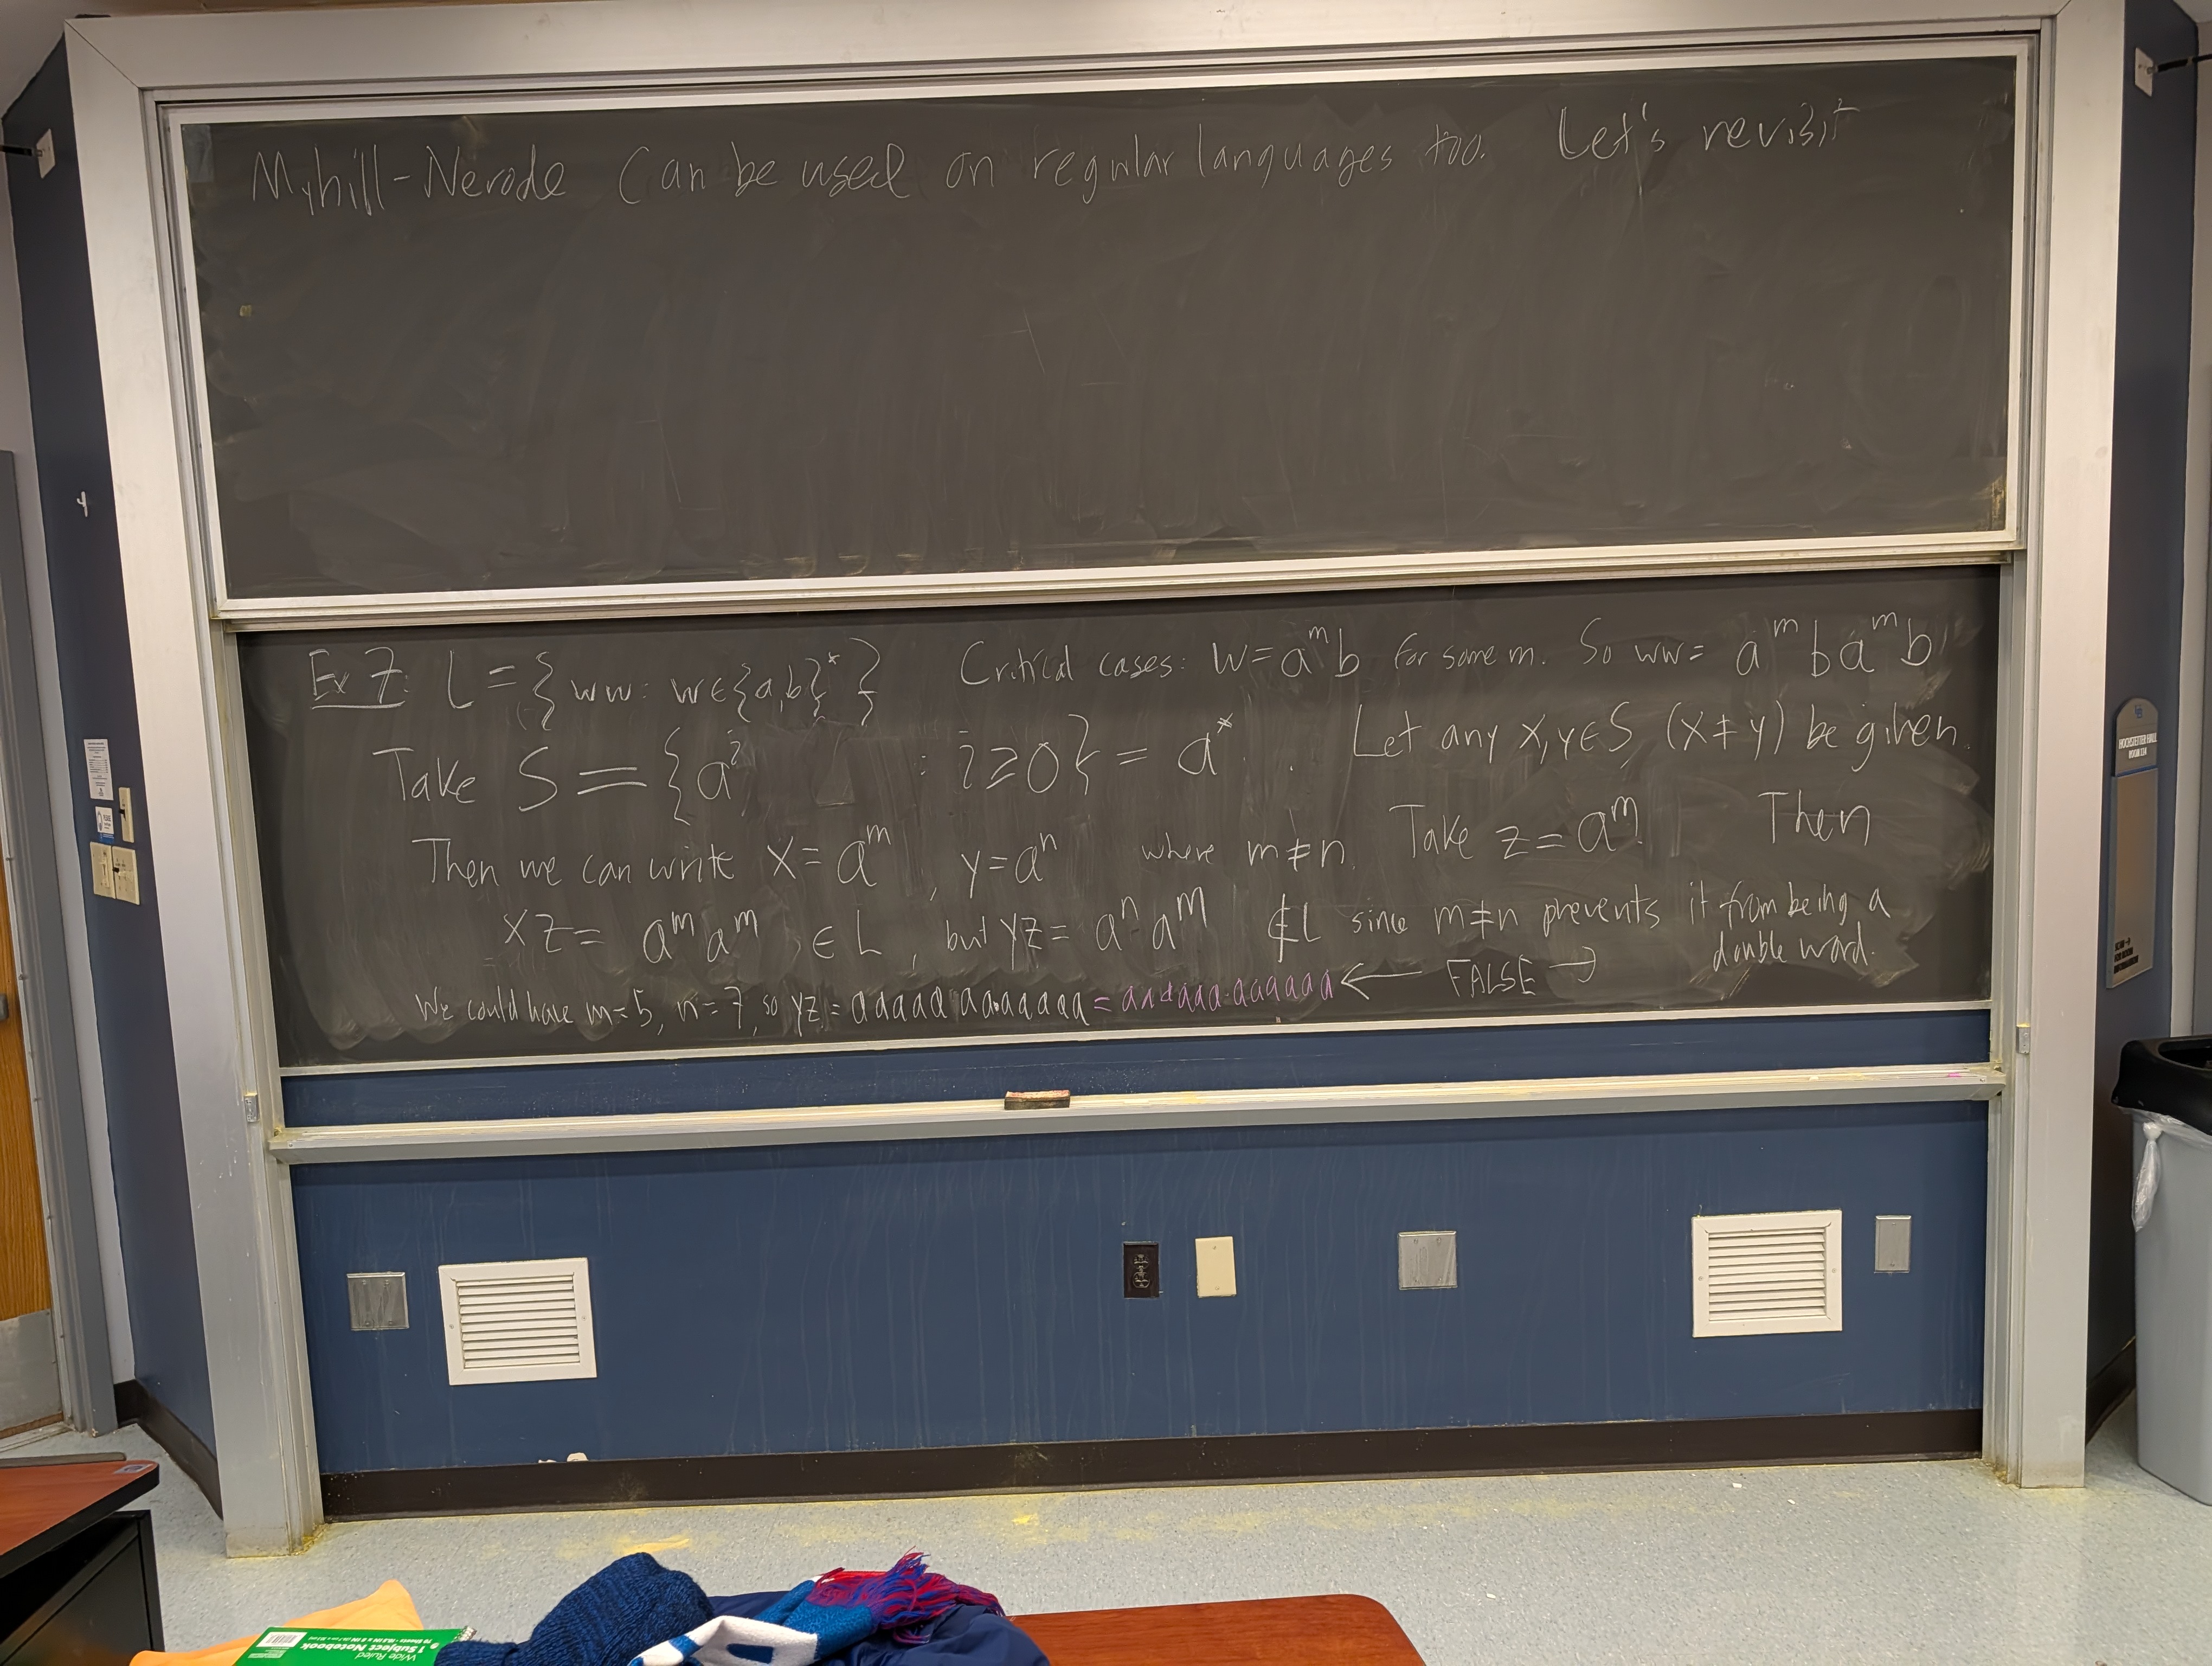 Myhill-Nerode Can be used on regular languages too. Let's revisit
Ex 7: L = { ww: w∈{a,b}* } Critical cases: w = a^m b for some m. So ww = a^m b a^m b
Take S = { a^i : i ≥ 0 } = a*. Let any x,y∈S (x ≠ y) be given.
Then we can write x = a^m, y = a^n where m ≠ n. Take z = a^m. Then
xz = a^m a^m ∈ L, but yz = a^n a^m ∉ L since m ≠ n prevents it from being a
double word.
We could have m = 5, n = 7, so yz = aaaaa aaaaaaa = aaaaaa·aaaaaa ← FALSE →
HOCHSTETTER HALL
ROOM 114
1 Subject Notebook
Wide Ruled